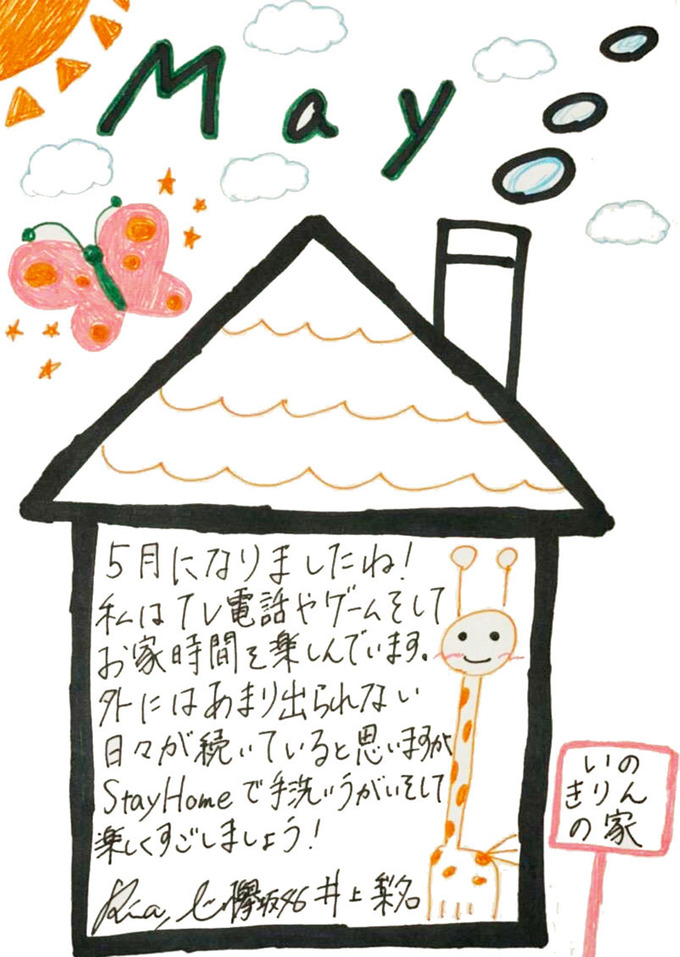 May
5月になりましたね!
私はTV電話やゲームそして
お家時間を楽しんでいます。
外にはあまり出られない
日々が続いていると思いますが
StayHomeで手洗いうがいそして
楽しくすごしましょう!
欅坂46 井上梨名
いの
きりん
の家